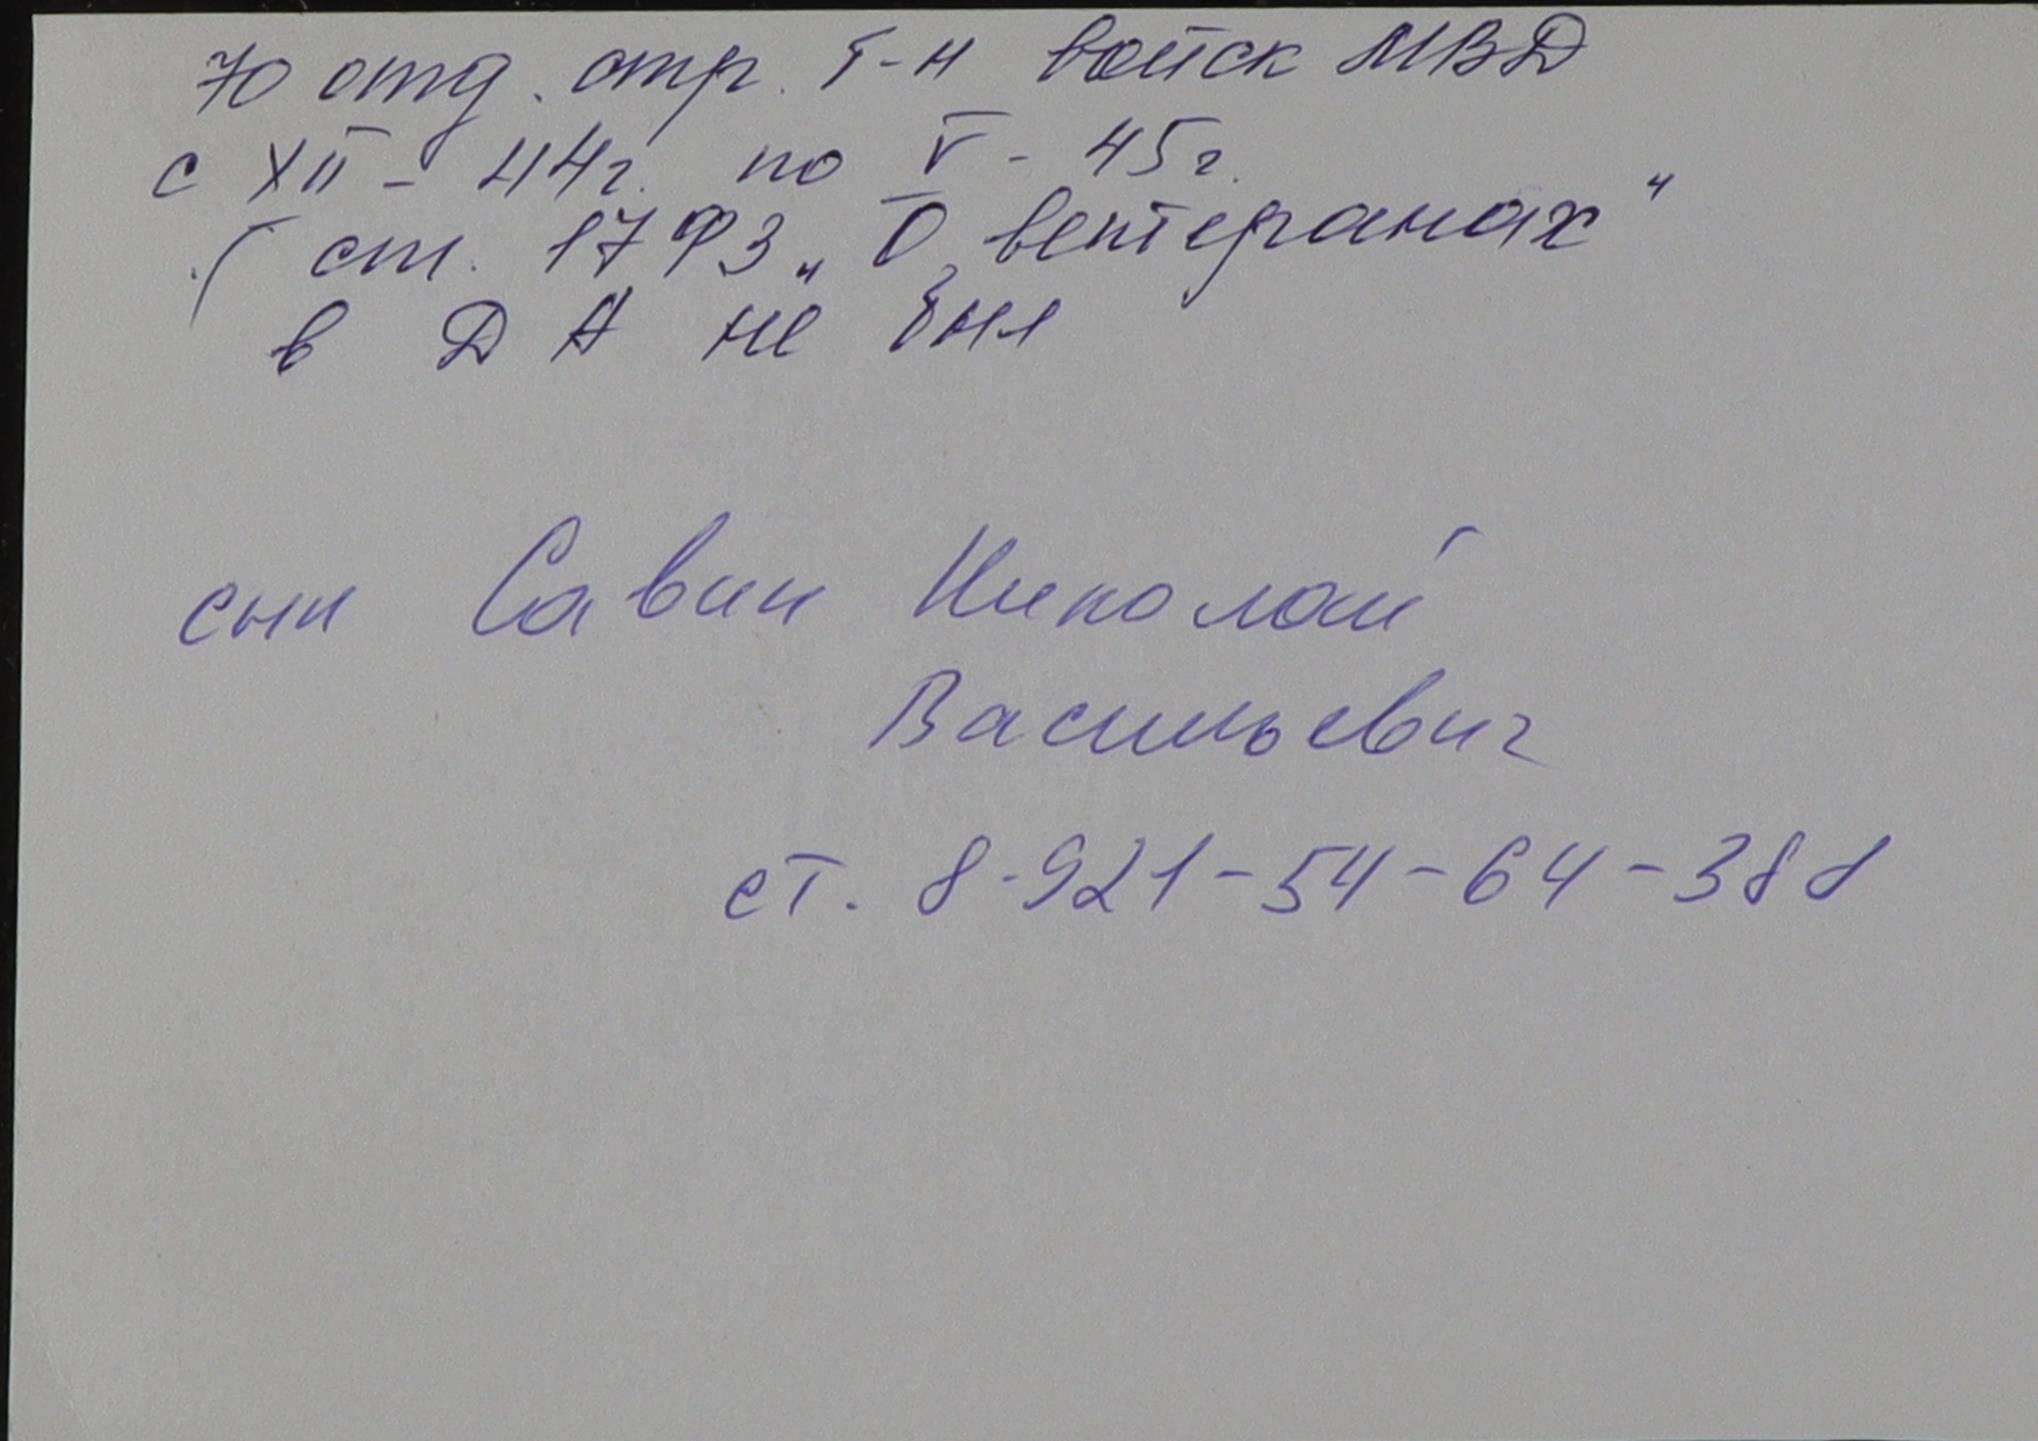 70 отд. стр. б-н войск МВД
с XII - 44г. по V - 45г.
( ст. 17 ФЗ „О ветеранах"
в ДА не был
сын Савин Николай
Васильевич
ст. 8-921-54-64-388